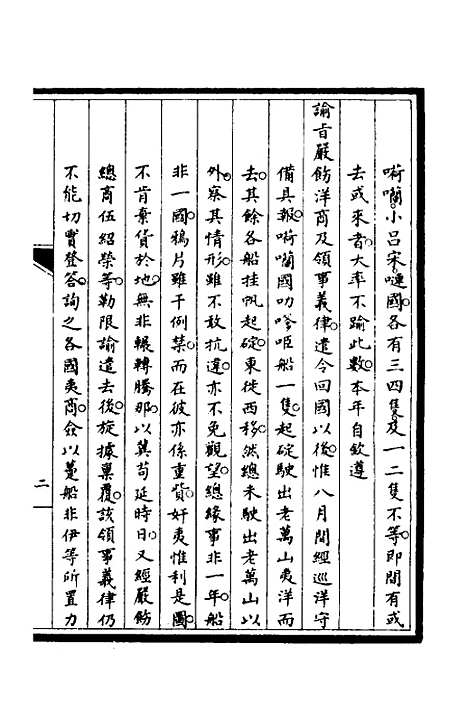 嗬囒小呂宋嗹國各有三四隻及一二隻不等即間有或
去或來者大率不踰此數本年自欽遵
諭旨嚴飭洋商及領事義律遣令回國以後惟八月間經巡洋守
備具報嗬囒國叻嗲咺船一隻起碇駛出老萬山夷洋而
去其餘各船挂帆起碇東徙西移然總未駛出老萬山以
外察其情形雖不敢抗違亦不免觀望總緣事非一年船
非一國鴉片雖干例禁而在彼亦係重貲奸夷惟利是圖
不肯棄貨於地無非輾轉騰那以冀苟延時日又經嚴飭
總商伍紹榮等勒限諭遣去後旋據稟覆該領事義律仍
不能切實登答詢之各國夷商僉以躉船非伊等所置力
二